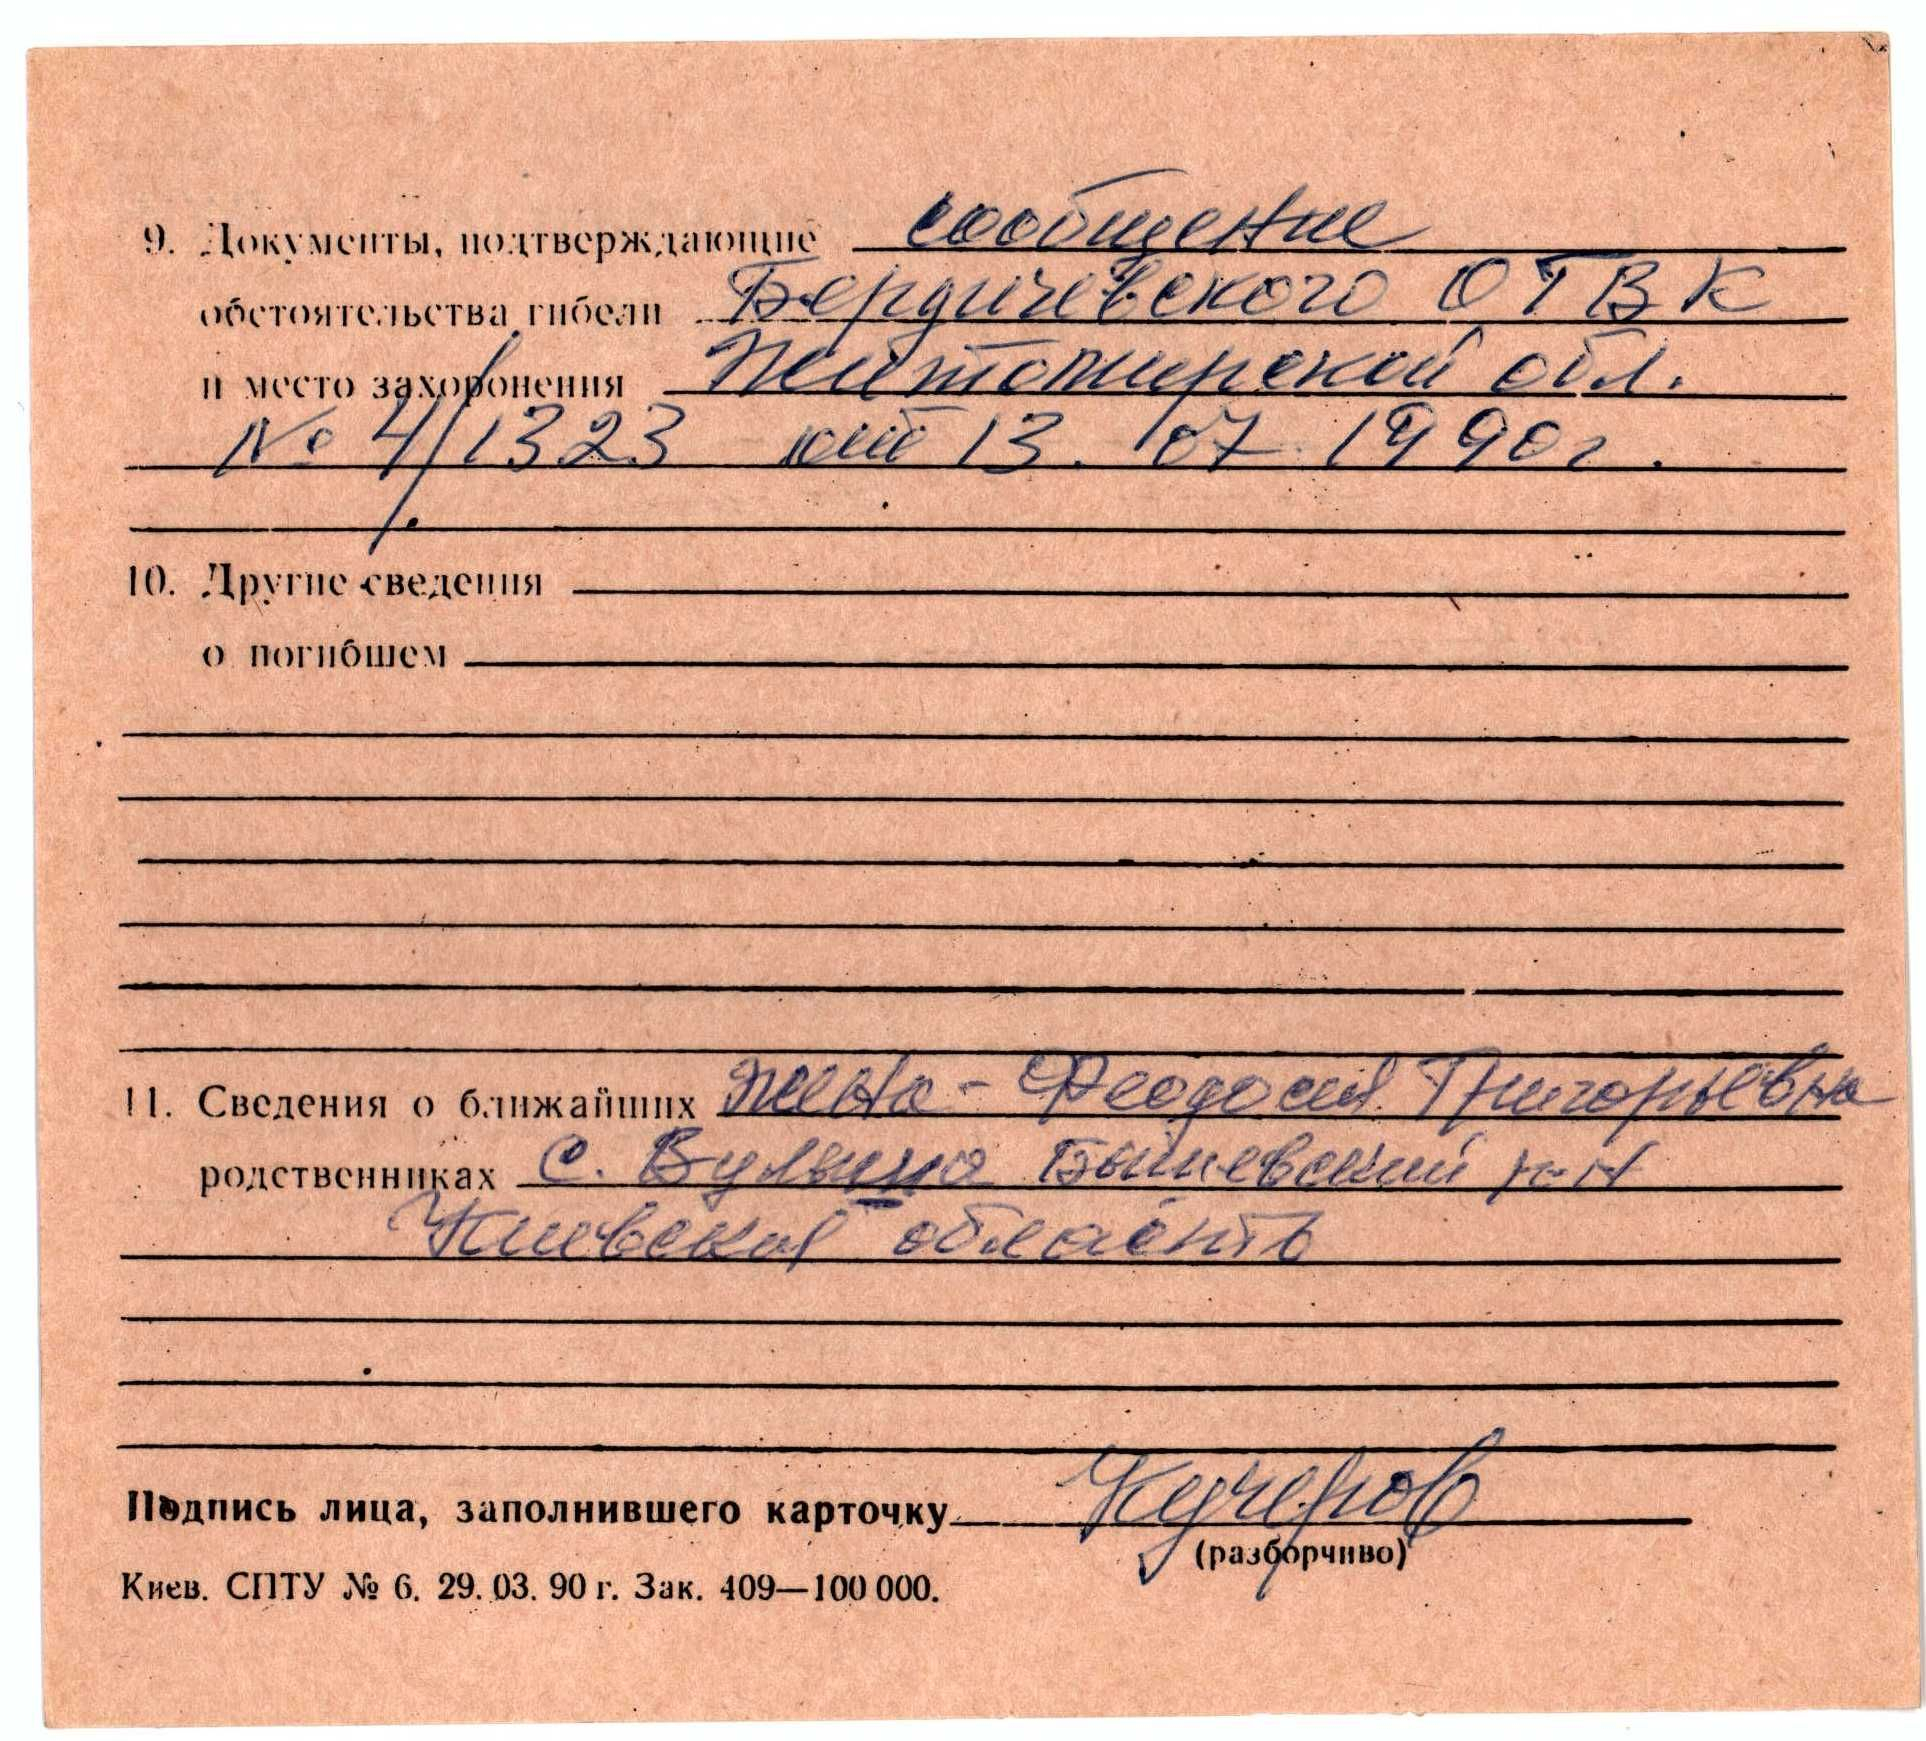 9. Документы, подтверждающие сообщение
обстоятельства гибели Бердичевского ОГВК
и место захоронения Житомирской обл.
№ 4/1323 от 13.07.1990г.
10. Другие сведения
о погибшем
11. Сведения о ближайших жена - Феодосия Григорьевна
родственниках с. Бышевский р-н
Киевская область
Подпись лица, заполнившего карточку Кучеров
(разборчиво)
Киев. СПТУ № 6. 29. 03. 90 г. Зак. 409—100 000.